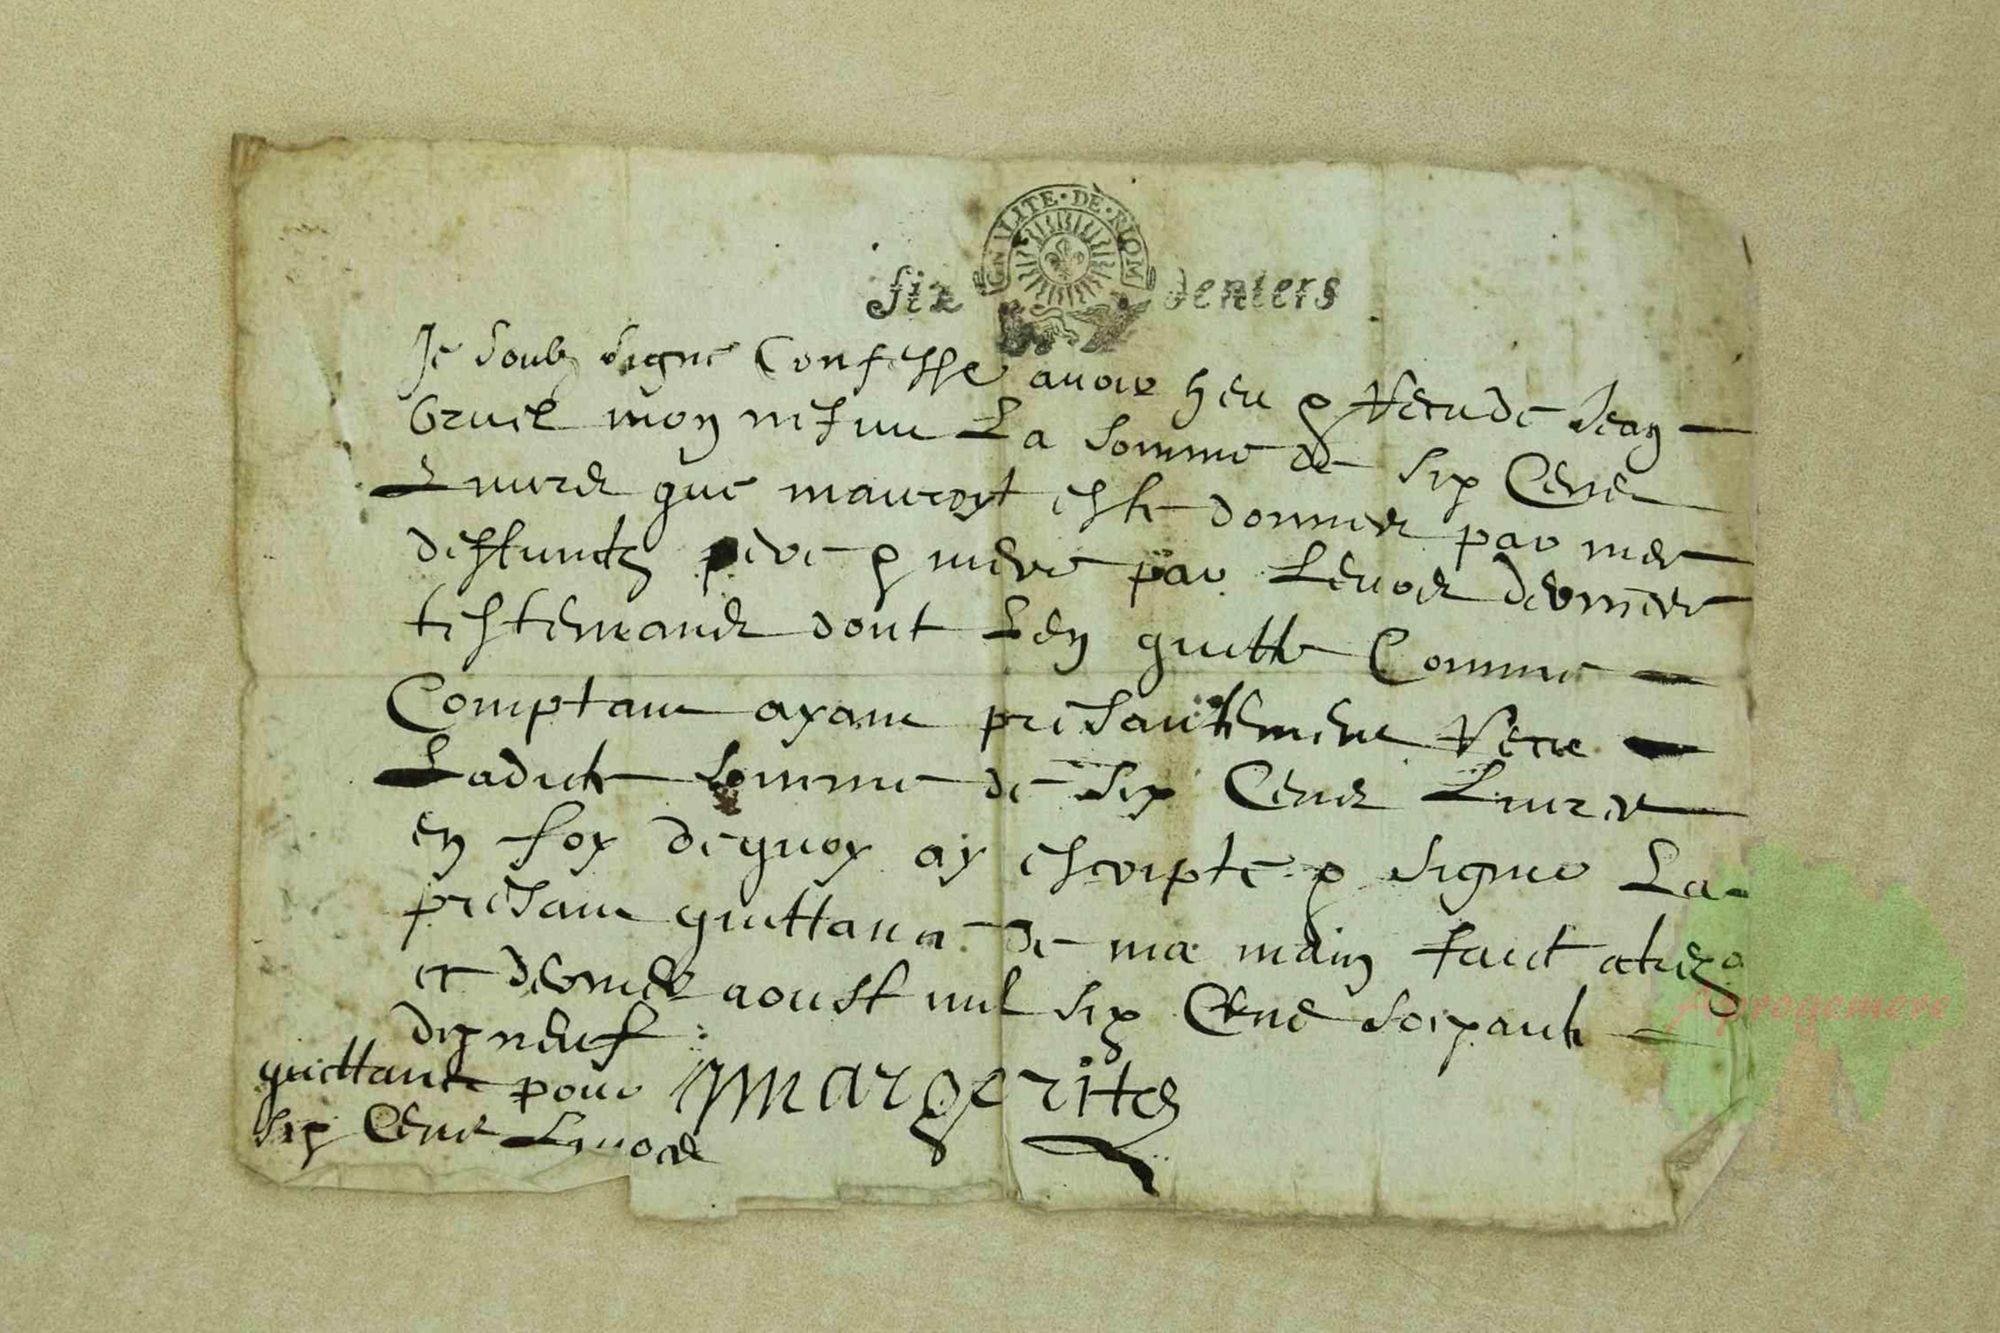 GNALITE·DE·RIOM
six deniers
Je soubz signe Confesse avoir heu & Receu de Jean
bruel mon nepveu La somme de six Cens
Livres que mavoyt este donnee par mes
deffunctz pere & mere par Leurs derniers
testemans dont Len quitte Comme
Comptant ayant presantement Receu
Ladicte somme de six Cens Livres
en foy dequoy ay escripte & signe La
presant quittance de ma main faict
et dernier aoust mil six Cens soixante
dix neuf
margerite
quittance pour
six Cens Livres
Aprogemere